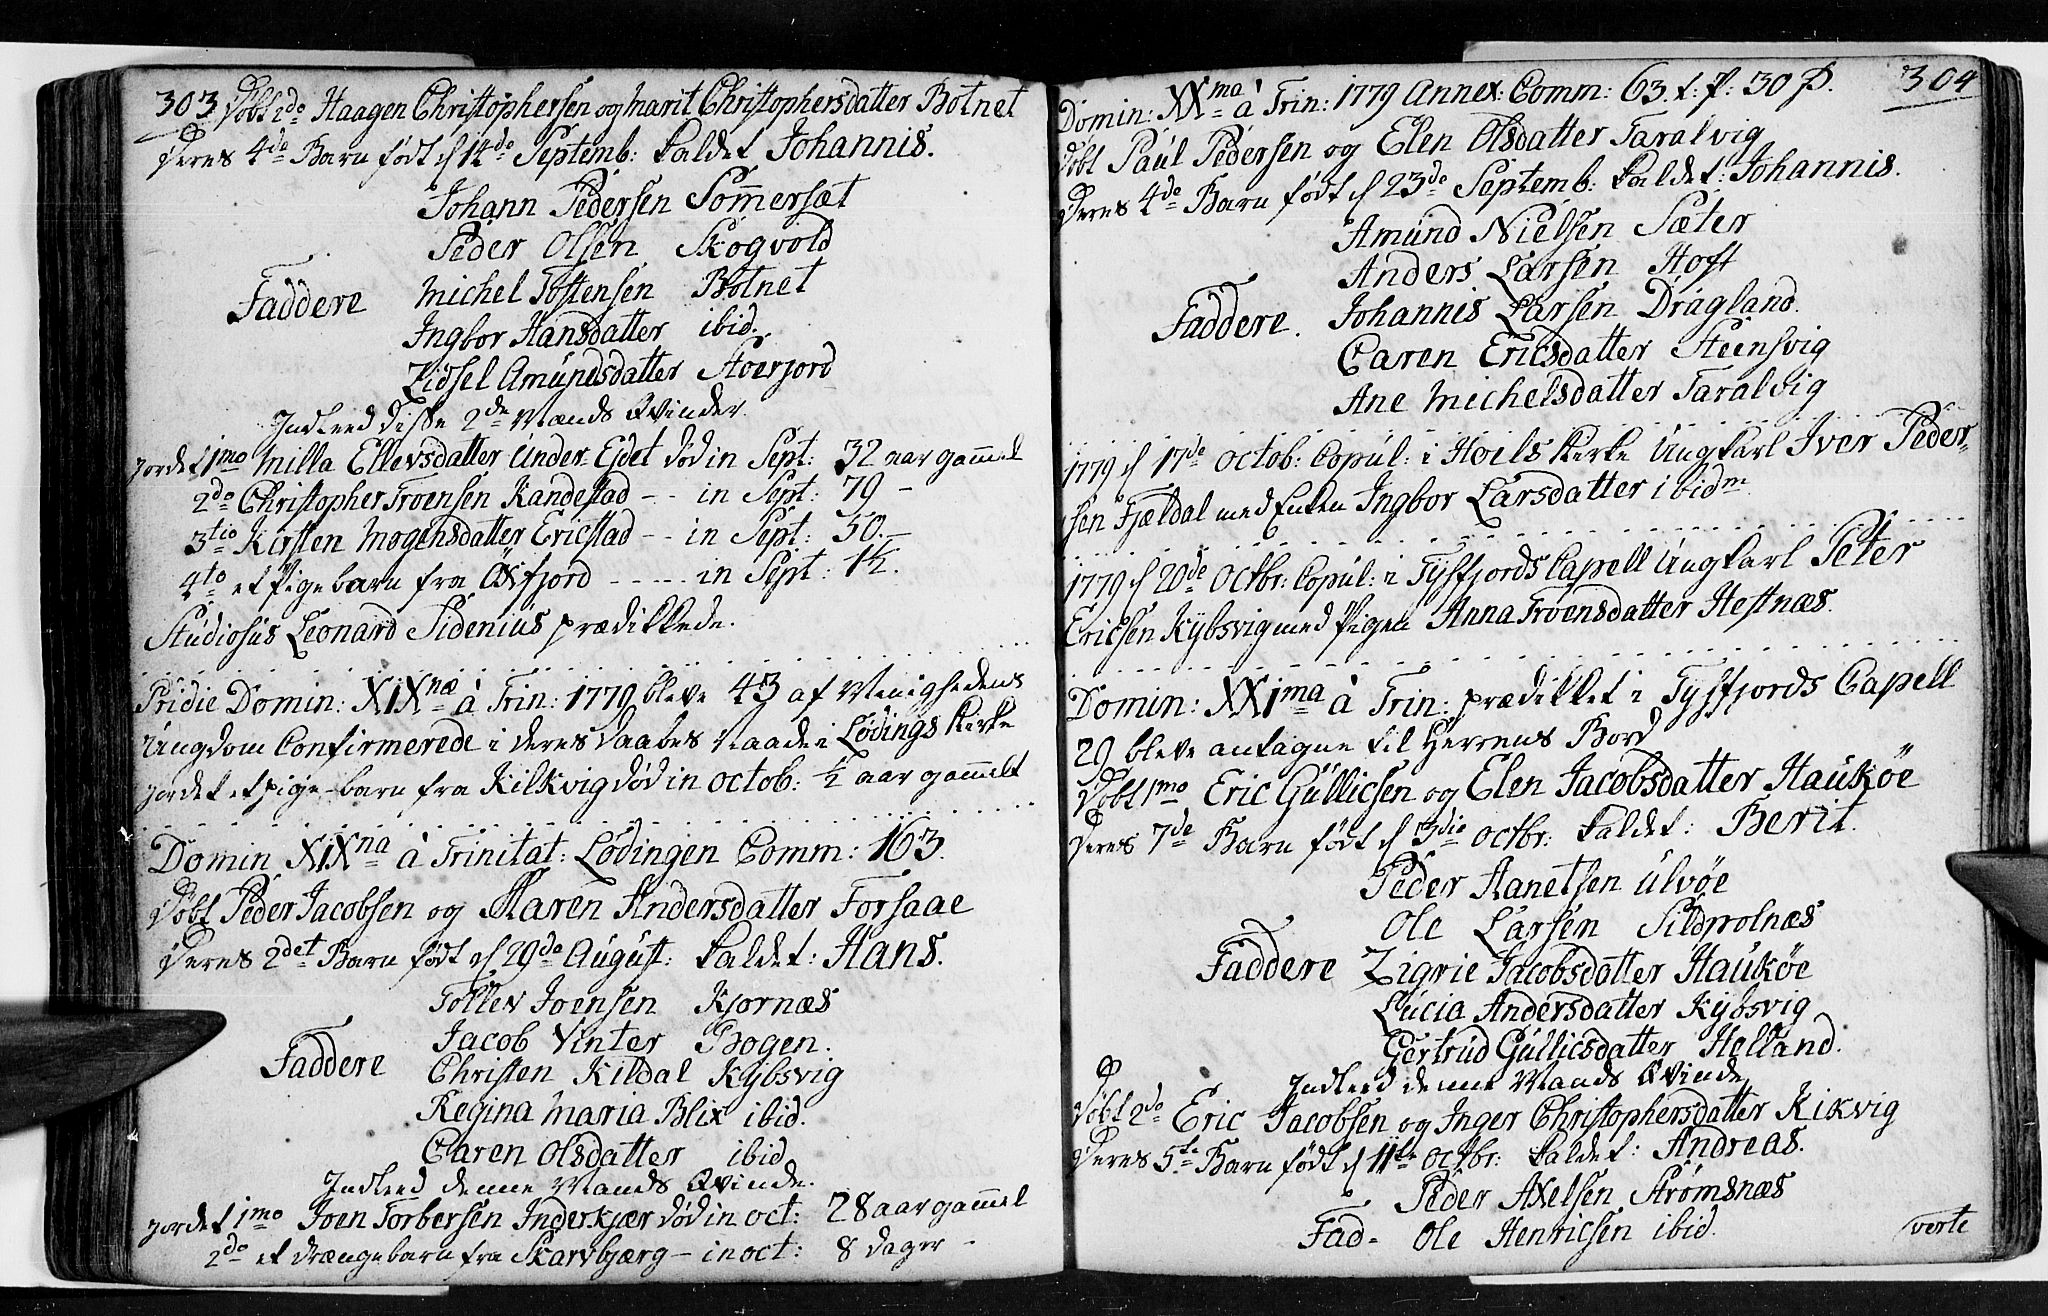 303 Døbt 2do Haagen Christophersen og Marit Christophersdatter Botnet
Deres 4de Barn født d 14de Septemb: kaldet Johannis.
Johann Pedersen Som̄ersæt
Peder Olsen Skogvold
Faddere Michel Tostensen Botnet
Ingbor Hansdatter ibid.
Zidsel Amundsdatter Stoerjord
Indleed disse 2de Mænds Qvinder.
Jordet 1mo Milla Ellevsdatter Under-Ejdet død in Sept: 32 aar gam̄el
2do Christopher Troensen Kandestad -- in Sept: 79 -
3tio Kirsten Mogensdatter Ericstad -- in Sept: 50. -
4to et Pigebarn fra Øxfjord ---- in Sept: 1½.
Studiosus Leonard Sidenius prædikkede.
Pridie Domin: XIXnæ à Trin: 1779 bleve 43 af Menighedens
Ungdom Confirmerede i deres Daabes Naade i Lødings Kirke
Jordet et pige-barn fra Kilkvig død in Octob: ½ aar gam̄elt
Domin XIXna à Trinitat: Lødingen Comm: 163.
Døbt Peder Jacobsen og Karen Andersdatter Forsaae
Deres 2det Barn født d 29de August: kaldet: Hans.
Tollev Joensen Kjornæs
Jacob Vinter Bogen.
Faddere Christen Kildal Kjøbsvig
Regina Maria Blix ibid.
Caren Olsdatter ibid
Indleed denne Mands Qvinde.
Jordet 1mo Joen Torbersen Inderkjær død in oct: 28 aar gam̄el
2do et drængebarn fra Skarvbjærg - in oct: 8 dager -
304
Domin: XXma à Trin: 1779 Annex: Comm: 63. t: P: 30 ß.
Døbt Paul Pedersen og Elen Olsdatter Taralvig
Deres 4de Barn født d 23de Septemb: kaldet: Johannis.
Amund Nielsen Sæter
Anders Larsen Hoft
Faddere. Johannis Larsen Dragland.
Caren Ericsdatter Steensvig
Ane Michelsdatter Taralvig
1779 d 17de octob: Copul: i Hoils Kirke Ungkarl Iver Peder-
sen Fjældal med Enken Ingbor Larsdatter ibidm.
1779 d 20de Octbr: Copul: i Tysfjords Capell Ungkarl Peter
Ericsen Kjøbsvig med Pigen Anna Troensdatter Hestnæs.
Domin: XXIma à Trin: prædikket i Tysfjords Capell
29 bleve antagne til Herrens Bord
Døbt 1mo Eric Gullicsen og Elen Jacobsdatter Haukøe
Deres 7de Barn født d 3die Octbr: kaldet: Berit.
Peder Hanetsen Ulvøe
Ole Larsen Sildpolnæs
Faddere Zigrie Jacobsdatter Haukøe
Lucia Andersdatter Kjøbsvig
Gertrud Gullicsdatter Helland.
Indleed denne Mands Qvinde
Døbt 2do Eric Jacobsen og Inger Christophersdatter Kikvig
Deres 5te Barn født d 11te Octbr: kaldet: Andreas.
Peder Axelsen Strømsnæs
Fad- Ole Henricsen ibid.
verte